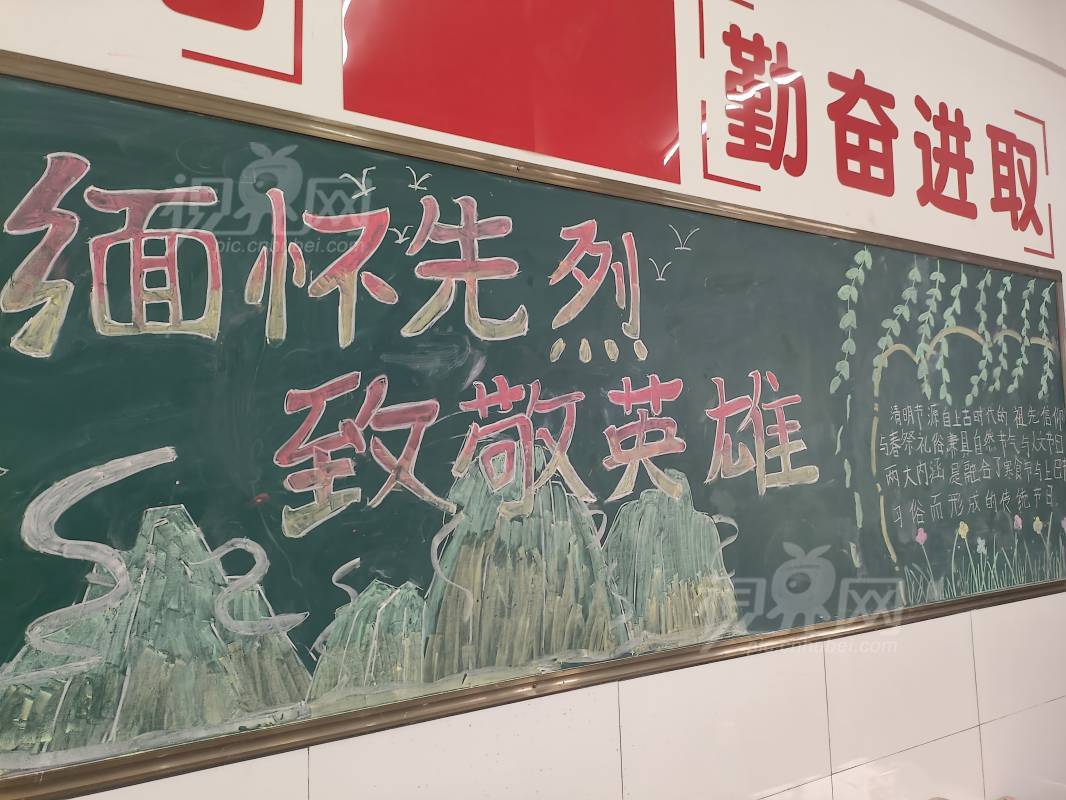 勤奋进取
缅怀先烈
致敬英雄
清明节源自上古时代的祖先信仰
与春祭礼俗兼具自然节气与人文节日
两大内涵是融合了寒食节与上巳节
习俗而形成的传统节日
视界网
pic.cnhubei.com
视界网
pic.cnhubei.com